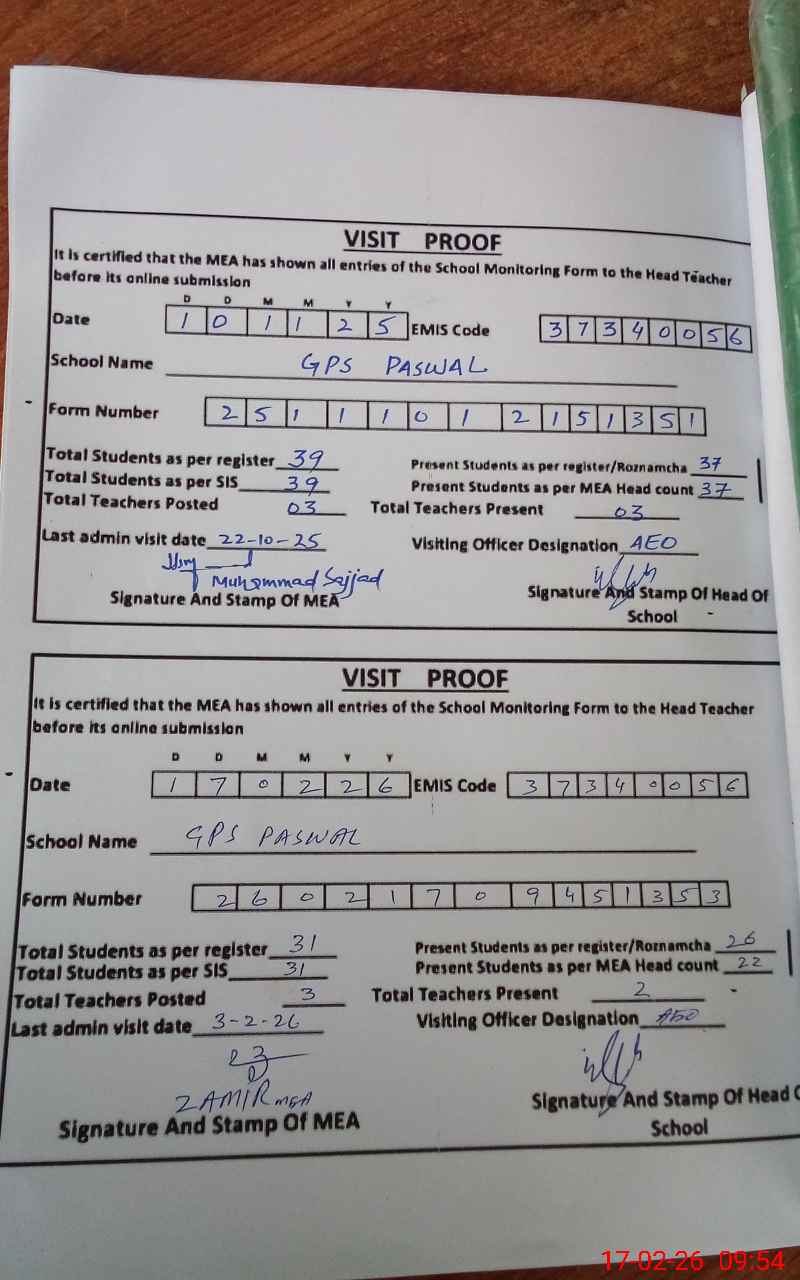 VISIT PROOF
It is certified that the MEA has shown all entries of the School Monitoring Form to the Head Teacher
before its online submission
D D M M Y Y
Date 1 0 1 1 2 5 EMIS Code 3 7 3 4 0 0 5 6
School Name GPS PASWAL
Form Number 2 5 1 1 1 0 1 2 1 5 1 3 5 1
Total Students as per register 39 Present Students as per register/Roznamcha 37
Total Students as per SIS 39 Present Students as per MEA Head count 37
Total Teachers Posted 03 Total Teachers Present 03
Last admin visit date 22-10-25 Visiting Officer Designation AEO
Muhammad Sajjad
Signature And Stamp Of MEA Signature And Stamp Of Head Of
School
VISIT PROOF
It is certified that the MEA has shown all entries of the School Monitoring Form to the Head Teacher
before its online submission
D D M M Y Y
Date 1 7 0 2 2 6 EMIS Code 3 7 3 4 0 0 5 6
School Name GPS PASWAL
Form Number 2 6 0 2 1 7 0 9 4 5 1 3 5 3
Total Students as per register 31 Present Students as per register/Roznamcha 26
Total Students as per SIS 31 Present Students as per MEA Head count 22
Total Teachers Posted 3 Total Teachers Present 2
Last admin visit date 3-2-26 Visiting Officer Designation AEO
ZAMIR MEA
Signature And Stamp Of MEA Signature And Stamp Of Head O
School
17-02-26 09:54